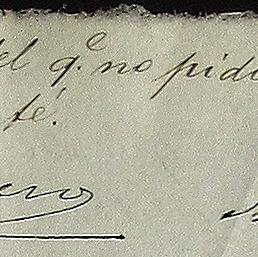 el q.e no pidi
té.
ero